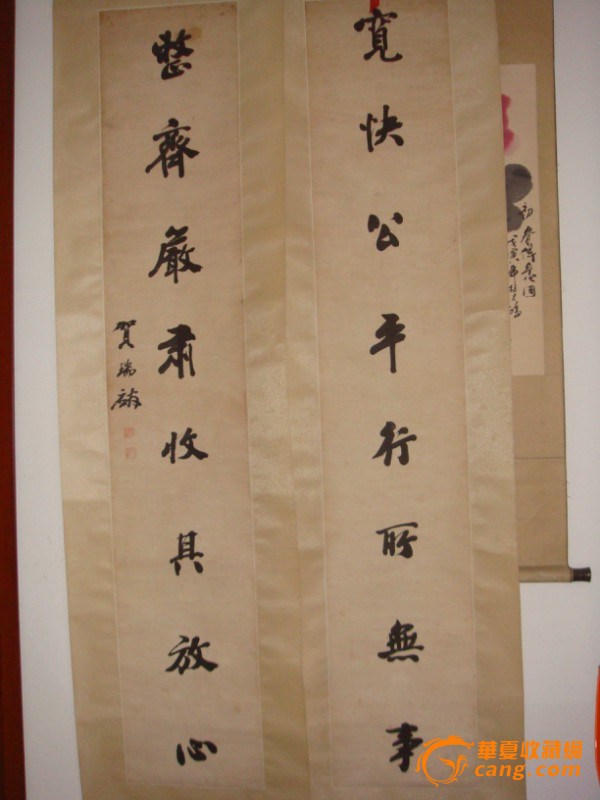 寬快公平行所無事
整齊嚴肅收其放心
賀瑞麟
華夏收藏網
cang.com